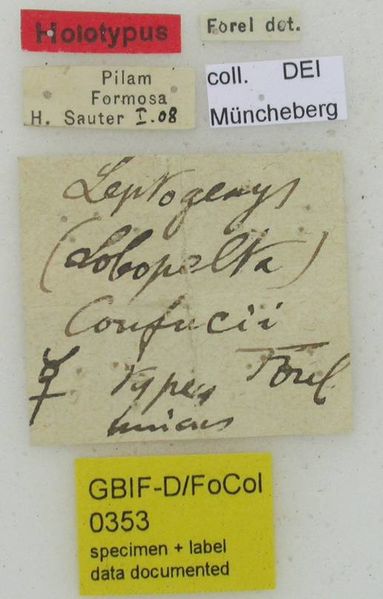 Holotypus
Forel det.
Pilam
Formosa
H. Sauter I.08
coll. DEI
Müncheberg
Leptogenys
(Lobopelta)
Confucii
☿ Types Forel
unicus
GBIF-D/FoCol
0353
specimen + label
data documented